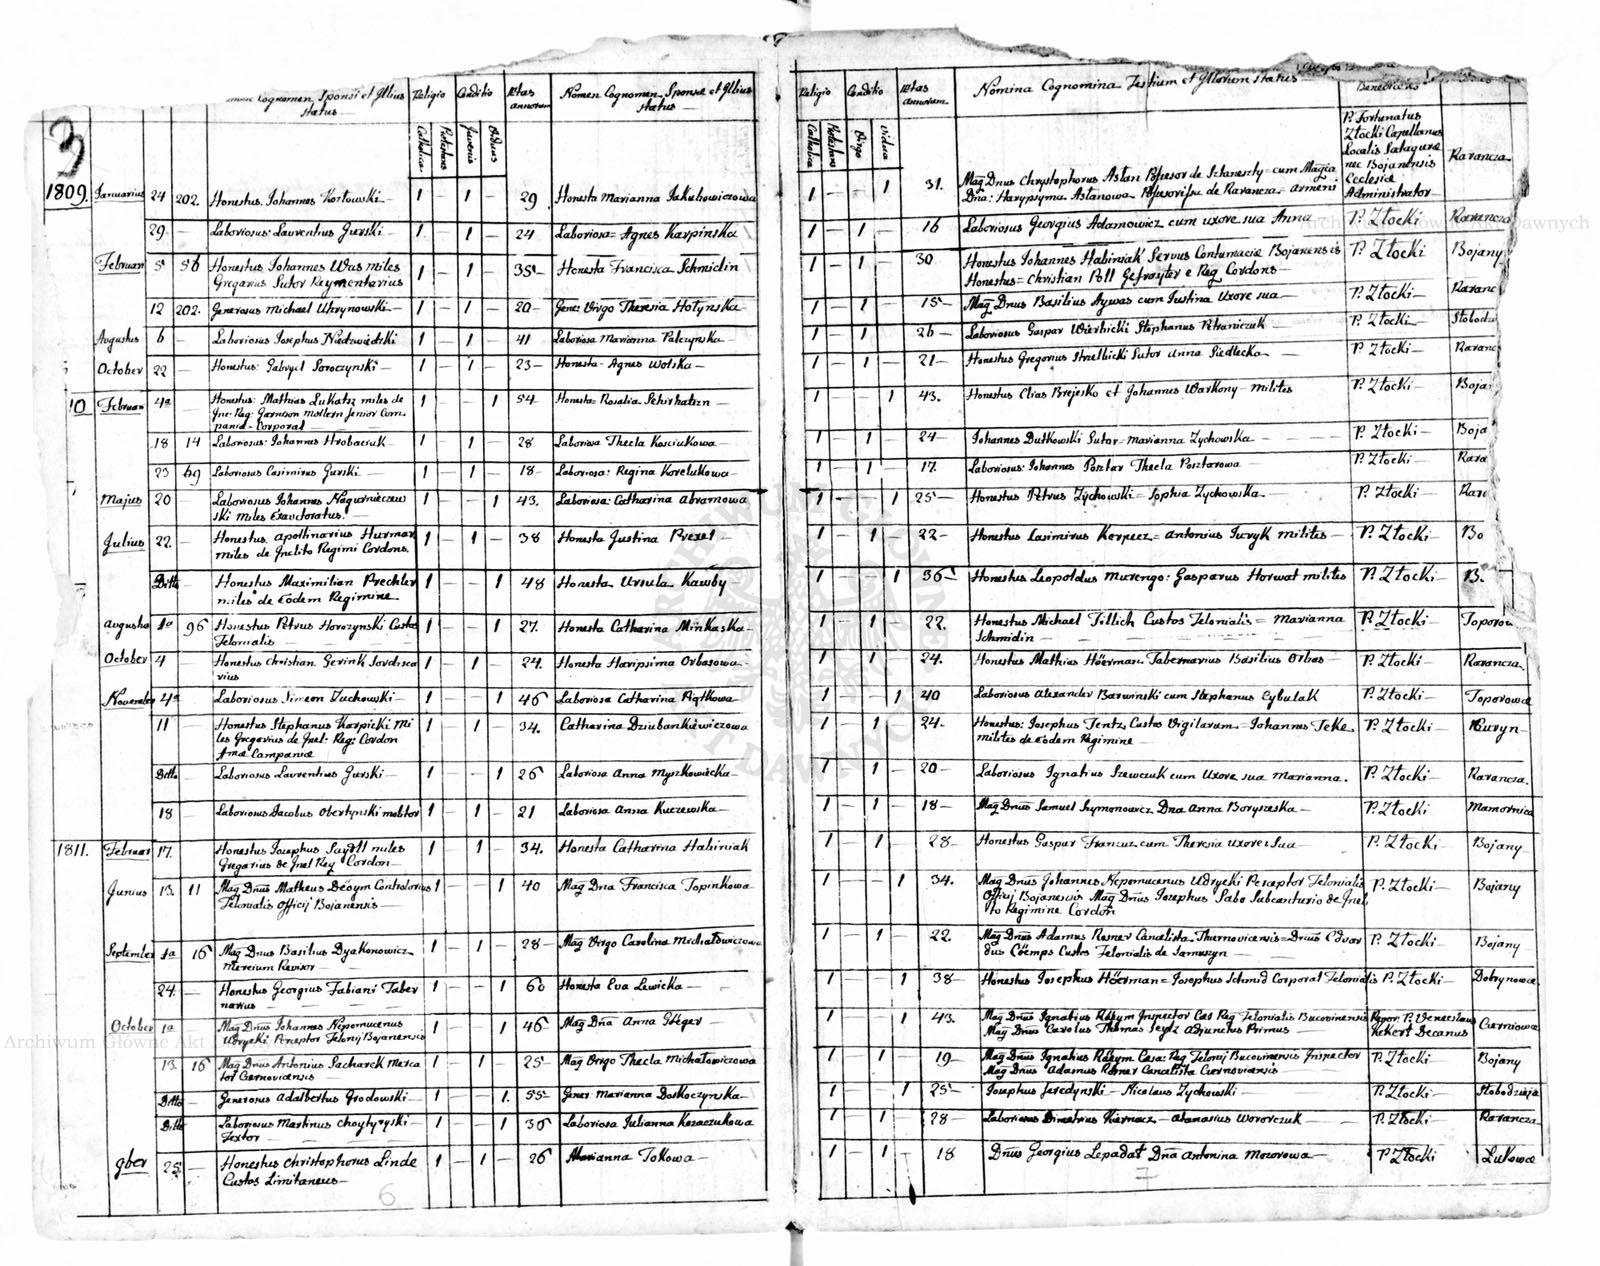 3
Nomen Cognomen Sponsi et Illius Status
Religio
Catholica
Protestans
Conditio
Juvenis
Viduus
Ætas annorum
Nomen Cognomen Sponsæ et Illius status
Religio
Catholica
Protestans
Conditio
Virgo
Vidua
Ætas annorum
Nomina Cognomina Testium et Illorum status
Benedicens
1809. Januarius 24 202. Honestus Johannes Kozłowski 1 – 1 – 29 Honesta Marianna Jakubowiczowa 1 – – 1 31. Mag Dnus Chrystophorus Astan Posesor de Sztanesty cum Magca
Dna: Harypsyma Astanowa Posesorissa de Rarancza Armeni
P. Fortunatus
Złocki Capellanus
Localis Sadaguræ
nec Bojanensis
Ecclesiæ
Administrator
Rarancza
29 – Laboriosus Laurentius Gurski 1 – 1 – 24 Laboriosa Agnes Karpinska 1 – 1 – 16 Laboriosus Georgius Adamowicz cum uxore sua Anna P. Złocki Rarancza
Februari 5 56 Honestus Johannes Was miles
Gregarius Sutor Reymentarius 1 – 1 – 35 Honesta Francisca Schmidin 1 – 1 – 30 Honestus Johannes Habiniak Servus Contumaciæ Bojanensis
Honestus Christian Poll Gefrayter e Reg Cordons P. Złocki Bojany
12 202. Generosus Michael Uhrynowski 1 – 1 – 20 Gene: Virgo Theresia Hotynska 1 – 1 – 15 Mag Dnus Basilius Aywas cum Justina Uxore sua P. Złocki Raranc
Augustus 6 – Laboriosus Josephus Niedzwiedzki 1 – 1 – 41 Laboriosa Marianna Palczynska 1 – 1 – 26 Laboriosus Gaspar Wierbicki Stephanus Petraniczuk P. Złocki Słobodz
October 22 – Honestus Gabryel Soroczynski 1 – 1 – 23 Honesta Agnes Wolska 1 – 1 – 21 Honestus Gregorius Strzelbicki Sutor Anna Siedlecka P. Złocki Raranc
10 Februari 4a – Honestus Mathias Lukatz miles de
Inc: Reg: Garnison mollern Senior Com-
pania Corporal 1 – – 1 54 Honesta Rosalia Schirhatzn 1 – – 1 43. Honestus Elias Brejesko et Johannes Warkony milites P. Złocki Boja
18 14 Laborios: Johannes Hrobaciuk 1 – 1 – 28 Laboriosa Thecla Kosciukowa 1 – 1 – 24 Johannes Dutkowski Sutor Marianna Zychowska P. Złocki Boja
23 69 Laboriosus Casimirus Gurski 1 – 1 – 18 Laboriosa: Regina Korelukowa 1 – 1 – 17. Laboriosus: Johannes Posztar Thecla Posztarowa P. Złocki Rara
Majus 20 – Laboriosus Johannes Nagurnieczew
ski miles Exauctoratus. 1 – – 1 43. Laboriosa: Catharina Abramowa 1 – – 1 25 Honestus Petrus Zychowski Sophia Zychowska P. Złocki Rar
Julius 22. – Honestus Apollinarius Hurmar
miles de Inclito Regimi Cordons. 1 – 1 – 38 Honesta Justina Prexel 1 – 1 – 22 Honestus Casimirus Kerpecz Antonius Juryk milites P. Złocki Bo
Ditto Honestus Maximilian Prechler
miles de Eodem Regimine 1 – – 1 48 Honesta Ursula Kawby 1 – – 1 36 Honestus Leopoldus Murengo: Gasparus Horwat milites P. Złocki B.
Augustus 1a 96 Honestus Petrus Horozynski Custos
Telonialis 1 – – 1 27. Honesta Catharina Minkaska 1 – 1 – 22. Honestus Michael Tillich Custos Telonialis Marianna
Schmidin P. Złocki Toporou
October 4 – Honestus Christian Gerink 1 – 1 – 24. Honesta Haripsima Orbasowa 1 – 1 – 24. Honestus Mathias Höerman Tabernarius Basilius Orbas P. Złocki Rarancza
November 4a – Laboriosus Simeon Zuchowski 1 – – 1 46 Laboriosa Catharina Piątkowa 1 – – 1 40 Laboriosus Alexander Barwinski cum Stephanus Cybulak P. Złocki Toporowce
11 Honestus Stephanus Karpicki Mi
les Gregarius de Inel: Reg: Cordon
Campaniæ 1 – 1 – 34. Catharina Dziubankiewiczowa 1 – 1 – 24. Honestus: Josephus Tentz Custos Vigilarum Johannes Teke
milites de Eodem Regimine P. Złocki Kuryn
Ditto – Laboriosus Laurentius Gurski 1 – – 1 26 Laboriosa Anna Myszkowiecka 1 – 1 – 20 Laboriosus Ignatius Szewczuk cum Uxore sua Marianna. P. Złocki Rarancza.
18 Laboriosus Jacobus Obertynski molitor 1 – 1 – 21 Laboriosa Anna Kuczewska 1 – 1 – 18 Mag Dnus Samuel Szymonowicz Dna Anna Boryszeska P. Złocki Mamornica
1811. Februari 17. Honestus Josephus Sayoll miles
Gregarius de Inel Reg Cordon 1 – 1 – 34. Honesta Catharina Habiniak 1 – 1 – 28 Honestus Gaspar Francuz cum Theresia uxore sua P. Złocki Bojany
Junius 13. 11 Mag Dnus Matheus Deöym Controlorius
Telonialis Officij Bojanensis 1 – – 1 40 Mag Dna Francisca Topinkowa 1 – – 1 34. Mag Dnus Johannes Nepomucenus Udrycki Perceptor Telonialis
Officij Bojanensis Mag Dnus Josephus Sabo Subcenturio de Inel
to Regimine Cordon P. Złocki Bojany
September 1a 16 Mag Dnus Basilius Dyakonowicz
mercium Revisor 1 – 1 – 28 Mag Virgo Carolina Michałowiczowa 1 – 1 – 22. Mag Dnus Adamus Rosner Cancelista Thernoviensis Dnus Edvar
dus Cöemps Custos Telonialis de Samuszyn P. Złocki Bojany
24. – Honestus Georgius Fabiani Taber
narius 1 – – 1 60 Honesta Eva Lewicka 1 – – 1 38 Honestus Josephus Höerman Josephus Schmid Corporal Telonialis P. Złocki Dobrynowce
October 1a – Mag Dnus Johannes Nepomucenus
Udrycki Perceptor Telonij Bojanensis 1 – – 1 46 Mag Dna Anna Gteger 1 – – 1 43. Mag Dnus Ignatius Räzym Inspector Cæs Reg Telonialis Bucovinensis
Mag Dnus Carolus Thomas Seytz Adjunctus Primus P. Venceslaus
Kekert Decanus Czerniowce
13. 16 Mag Dnus Antonius Sacharek Merca
tor Czernoviensis 1 – 1 – 25 Mag Virgo Thecla Michałowiczowa 1 – 1 – 19 Mag Dnus Ignatius Räzym Cæsa: Reg Telonij Bucovinensis Inspector
Mag Dnus Adamus Rosner Cancelista Czernoviensis P. Złocki Bojany
Ditto – Generosus Adalbertus Grodowski 1 – – 1. 55 Gener Marianna Doskoczynska 1 – – 1 25 Josephus Jeredynski Nicolaus Zychowski P. Złocki Słobodzieja
Ditto – Laboriosus Martinus Choytyryski
Textor 1 – – 1 36 Laboriosa Julianna Kozaczukowa 1 – – 1 28 Laboriosus Dimetrius Kiernacz Atanasius Worowczuk P. Złocki Rarancza
9ber 25 – Honestus Christophorus Linde
Custos Limitaneus 1 – 1 – 26 Marianna Tokowa 1 – 1 – 18 Dnus Georgius Lepadat Dna Antonina Mozorowa P. Złocki Łukowce
6
7
Archiwum Główne Akt Dawnych
ARCHIWUM GŁÓWNE AKT DAWNYCH